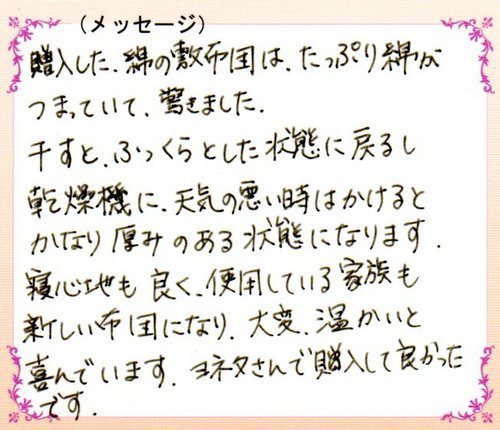 (メッセージ)
購入した、綿の敷布団は、たっぷり綿が
つまっていて、驚きました.
干すと、ふっくらとした状態に戻るし
乾燥機に、天気の悪い時はかけると
かなり厚みのある状態になります.
寝心地も良く、使用している家族も
新しい布団になり、大変、温かいと
喜んでいます. ヨネタさんで購入して良かった
です.